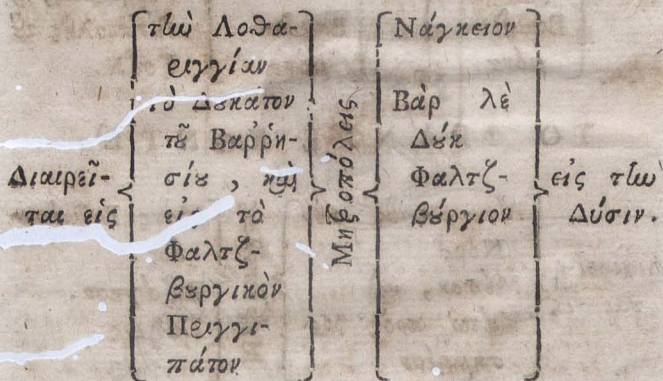 Διαιρεῖ-
ται εἰς
τὴν Λοθα-
ριγγίαν
τὸ Δυκατον
τοῦ Βαῤῥη-
σίου, καὶ
εἰς τὸ
Φαλτζ-
βουργικὸν
Πριγγι-
πάτον
Μητροπόλεις
Νάγκειον
Βὰρ λὲ
Δύκ
Φαλτζ-
βύργιον
εἰς τὴν
Δύσιν.